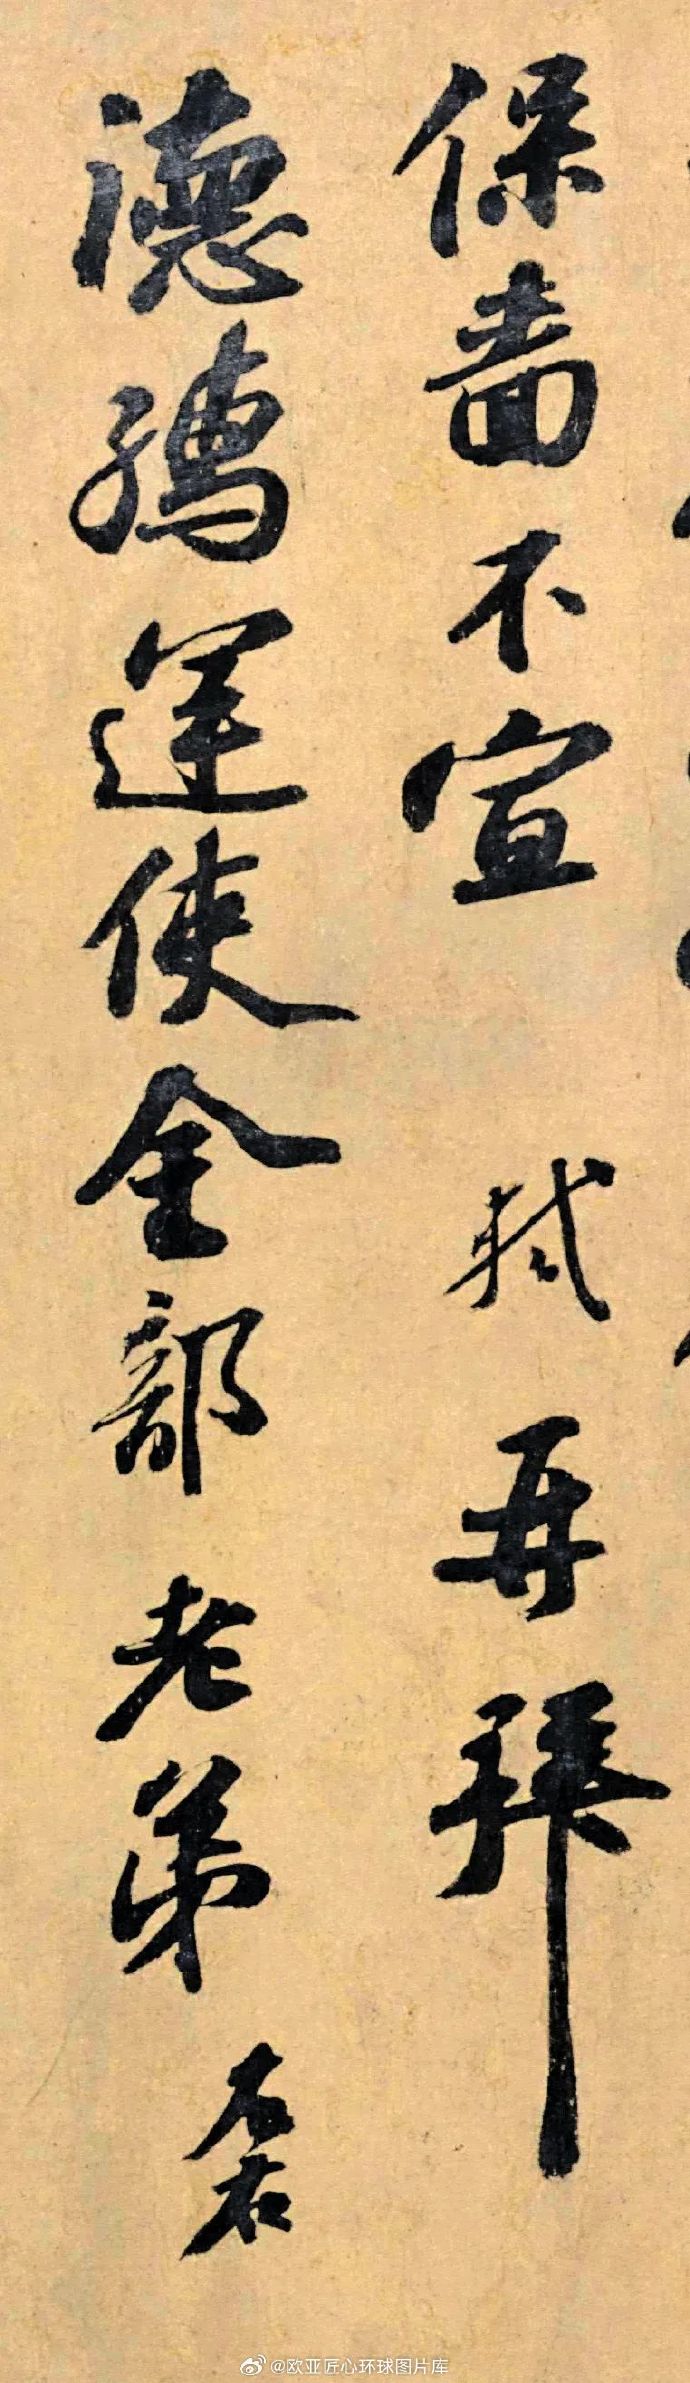 保嗇不宣 軾再拜
德孺運使金部老弟左右
@欧亚匠心环球图片库